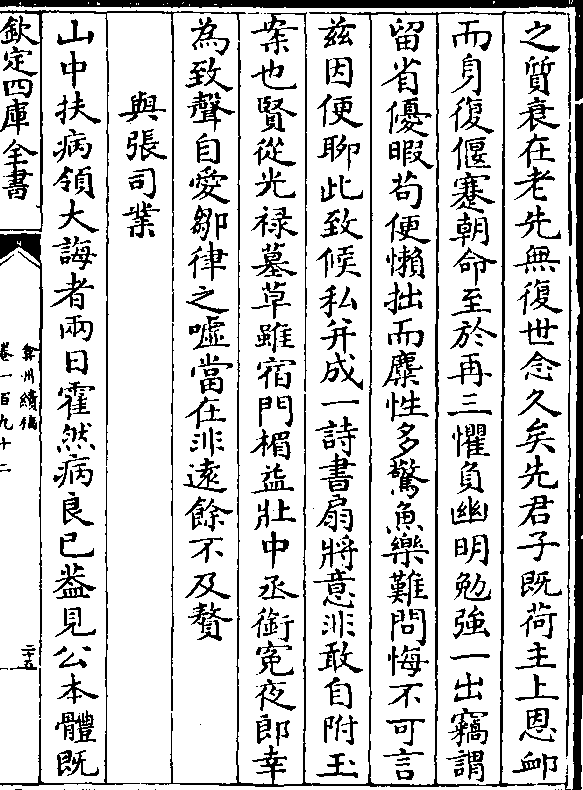 之質衰在老先無復世念久矣先君子既荷主上恩卹
而身復偃蹇朝命至於再三懼負幽明勉強一出竊謂
留省優暇苟便懶拙而麋性多驚魚樂難問悔不可言
兹因便聊此致候私并成一詩書扇將意非敢自附玉
案也賢從光禄墓草雖宿門楣益壯中丞銜寃夜郎幸
為致聲自愛鄒律之噓當在非遠餘不及贅
與張司業
山中扶病領大誨者兩日霍然病良已葢見公本體既
欽定四庫全書
弇州續稿
卷一百九十二
二十五